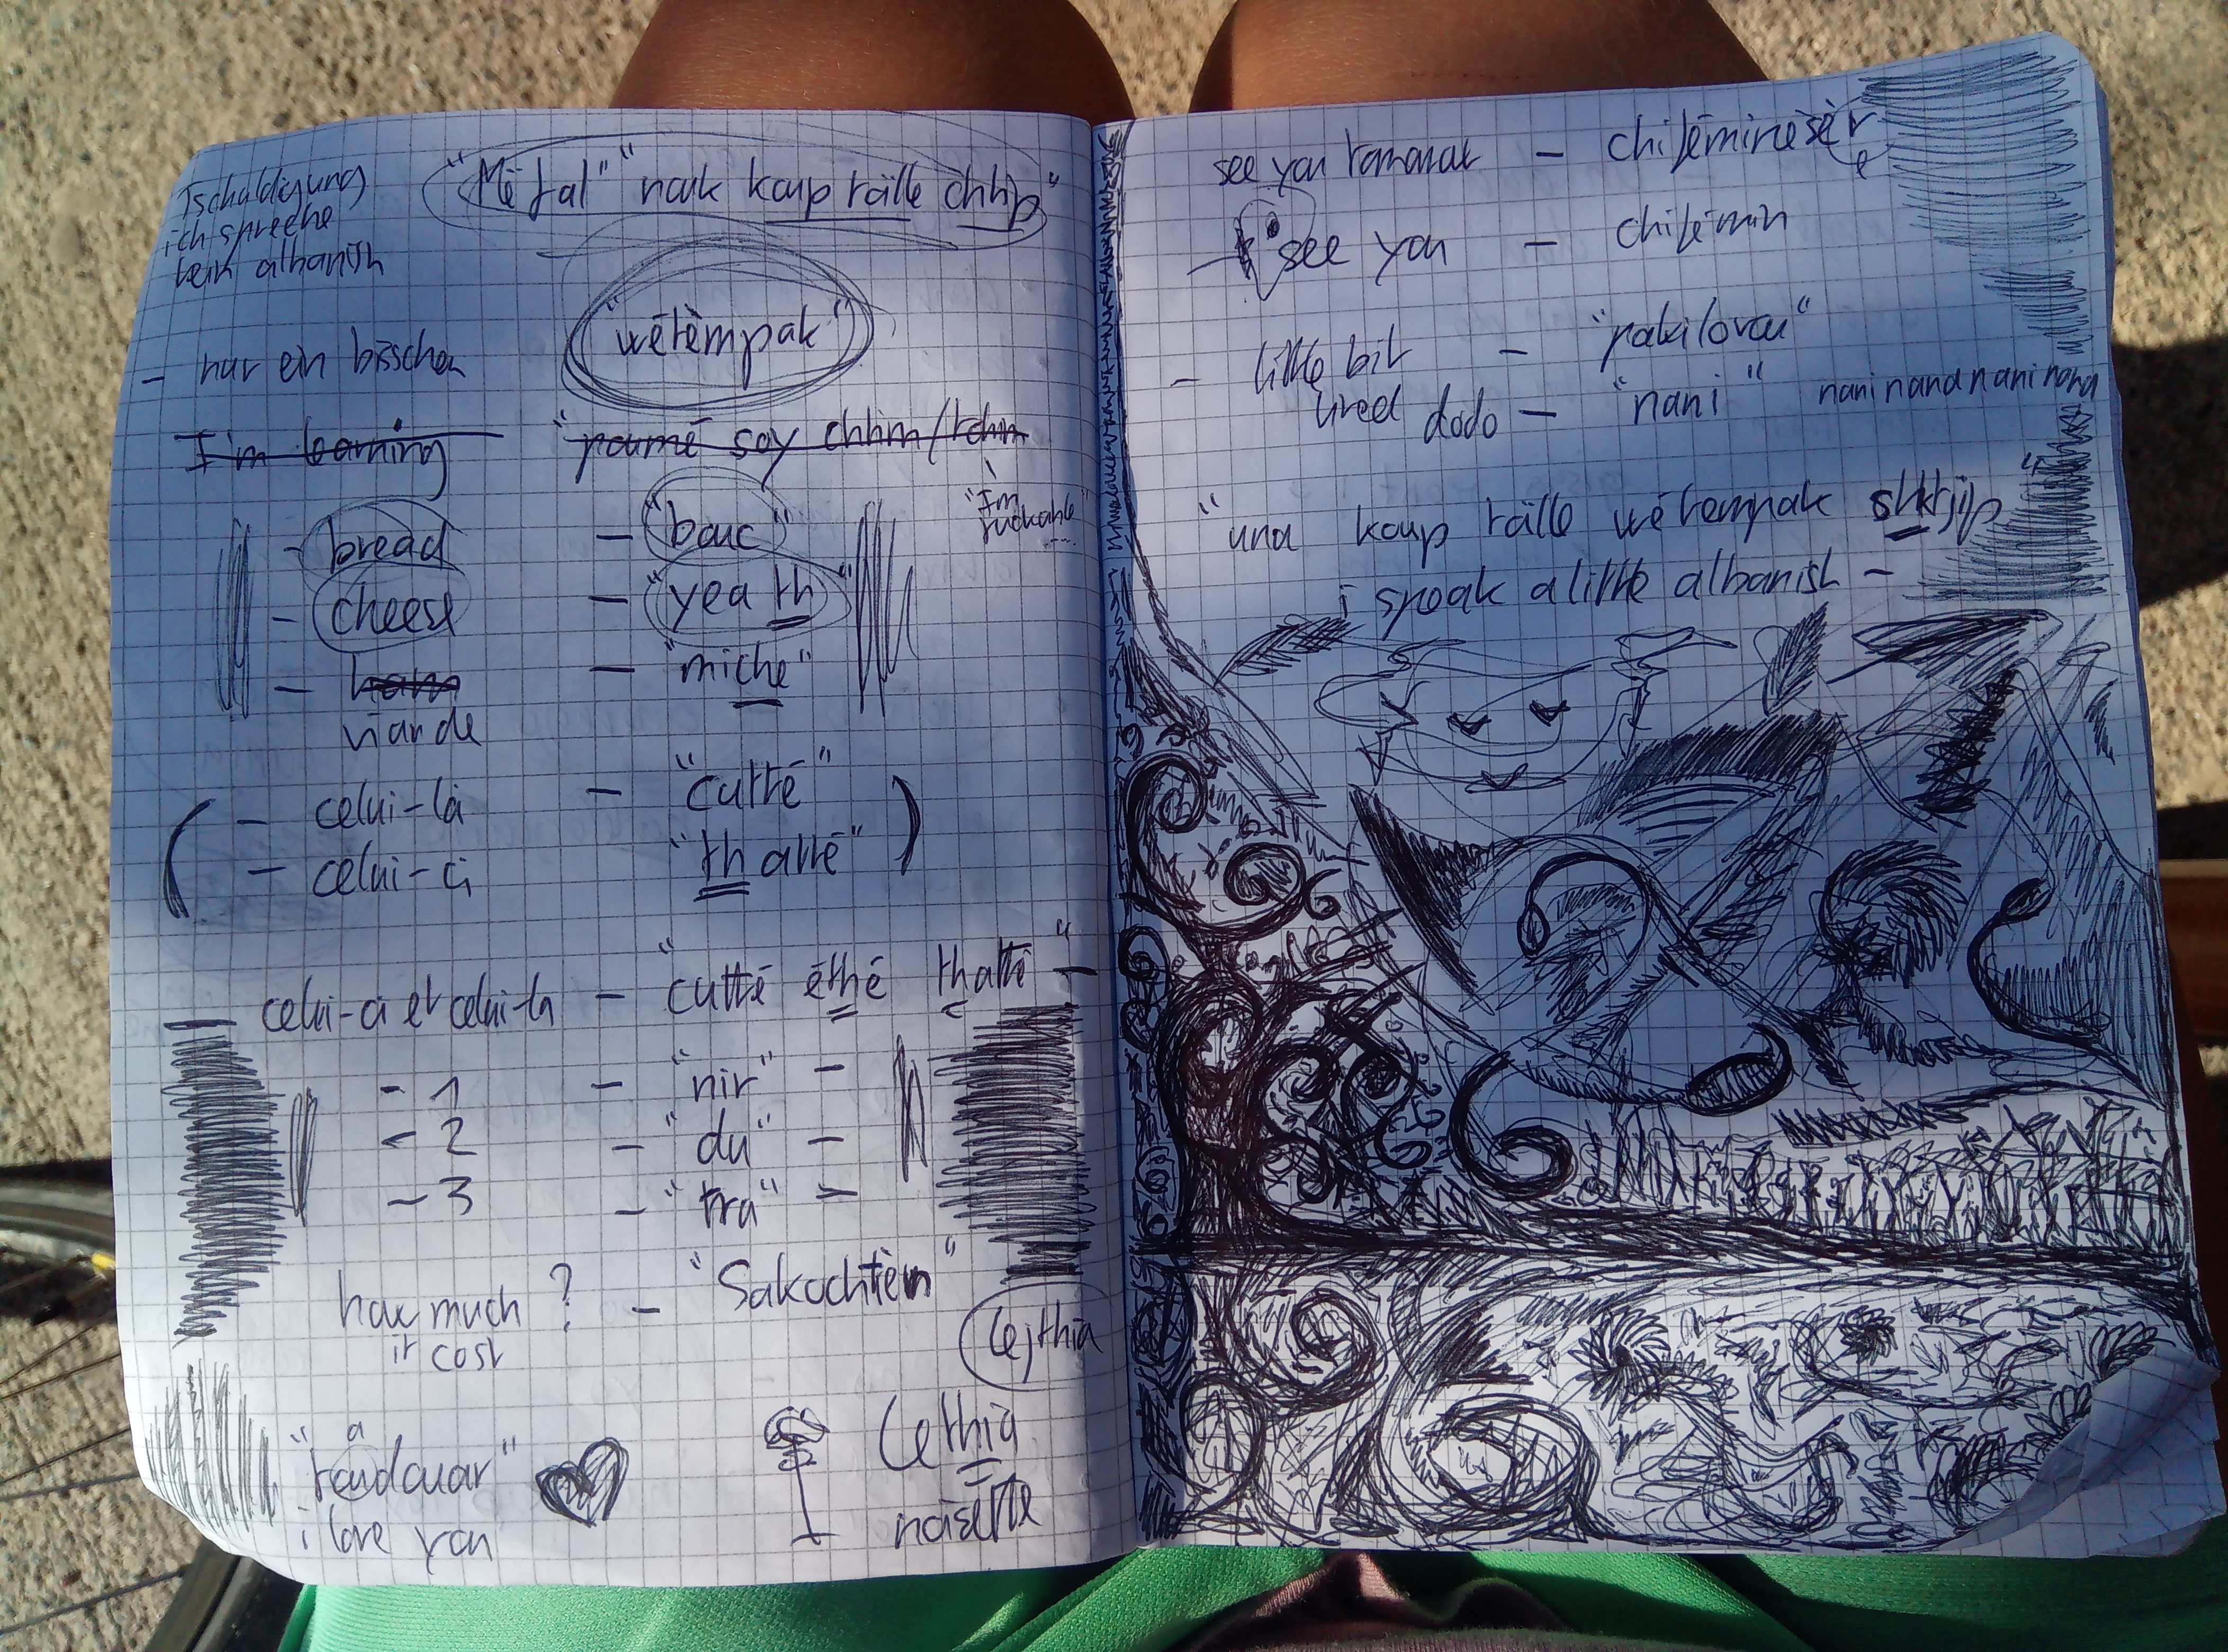 Tschuldigung
ich spreche
kein albanish
"Më fal" nuk kaup rälle chhip"
- nur ein bisschen
"wētèmpak"
I'm learning "poumē soy chhim/tchm
"I'm
- bread - "bouc"
- cheese - "yea th"
- ham - "miche"
viande
(- celui-là - "cuttē"
- celui-ci "thattē")
celui-ci et celui-là - "cuttē ēthē thattē" -
- 1 - "nir" -
- 2 - "du" -
- 3 - "tra" -
how much ? - "Sakochtèm"
it cost
Lejthia
"taudouar"
a
i love you
Lethia
noisette
see you tomorrow - chifēminesèr
e
see you - chifēmin
- little bit - "pakilorau"
tired dodo - "nani" nani nana nani nana
"una kaup rälle wētempak shkjip"
i speak a little albanish -